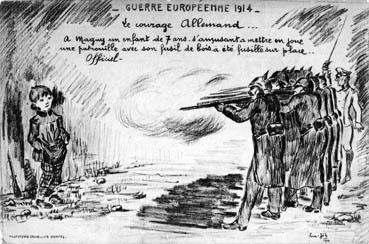 _ GUERRE EUROPÉENNE 1914_
Le courage Allemand...
A Magny un enfant de 7 ans. s'amusant à mettre en joue
une patrouille avec son fusil de bois a été fusillé sur place...
Officiel-